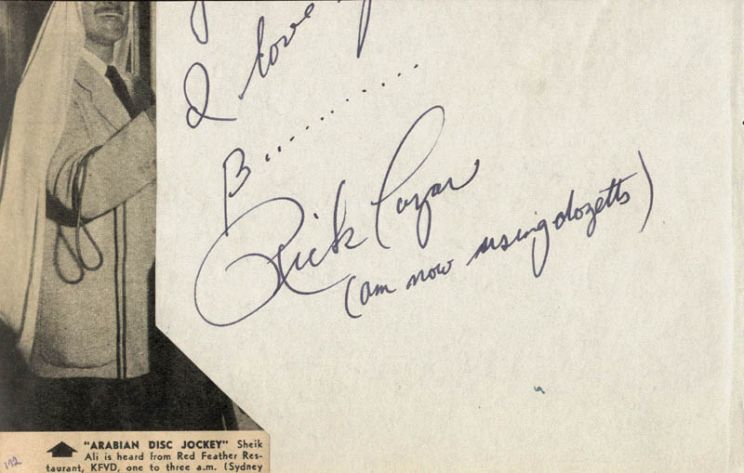 I love
B..........
Rick Lazar
(am now using dozetts)
"ARABIAN DISC JOCKEY" Sheik
Ali is heard from Red Feather Res-
taurant, KFVD, one to three a.m. (Sydney
192